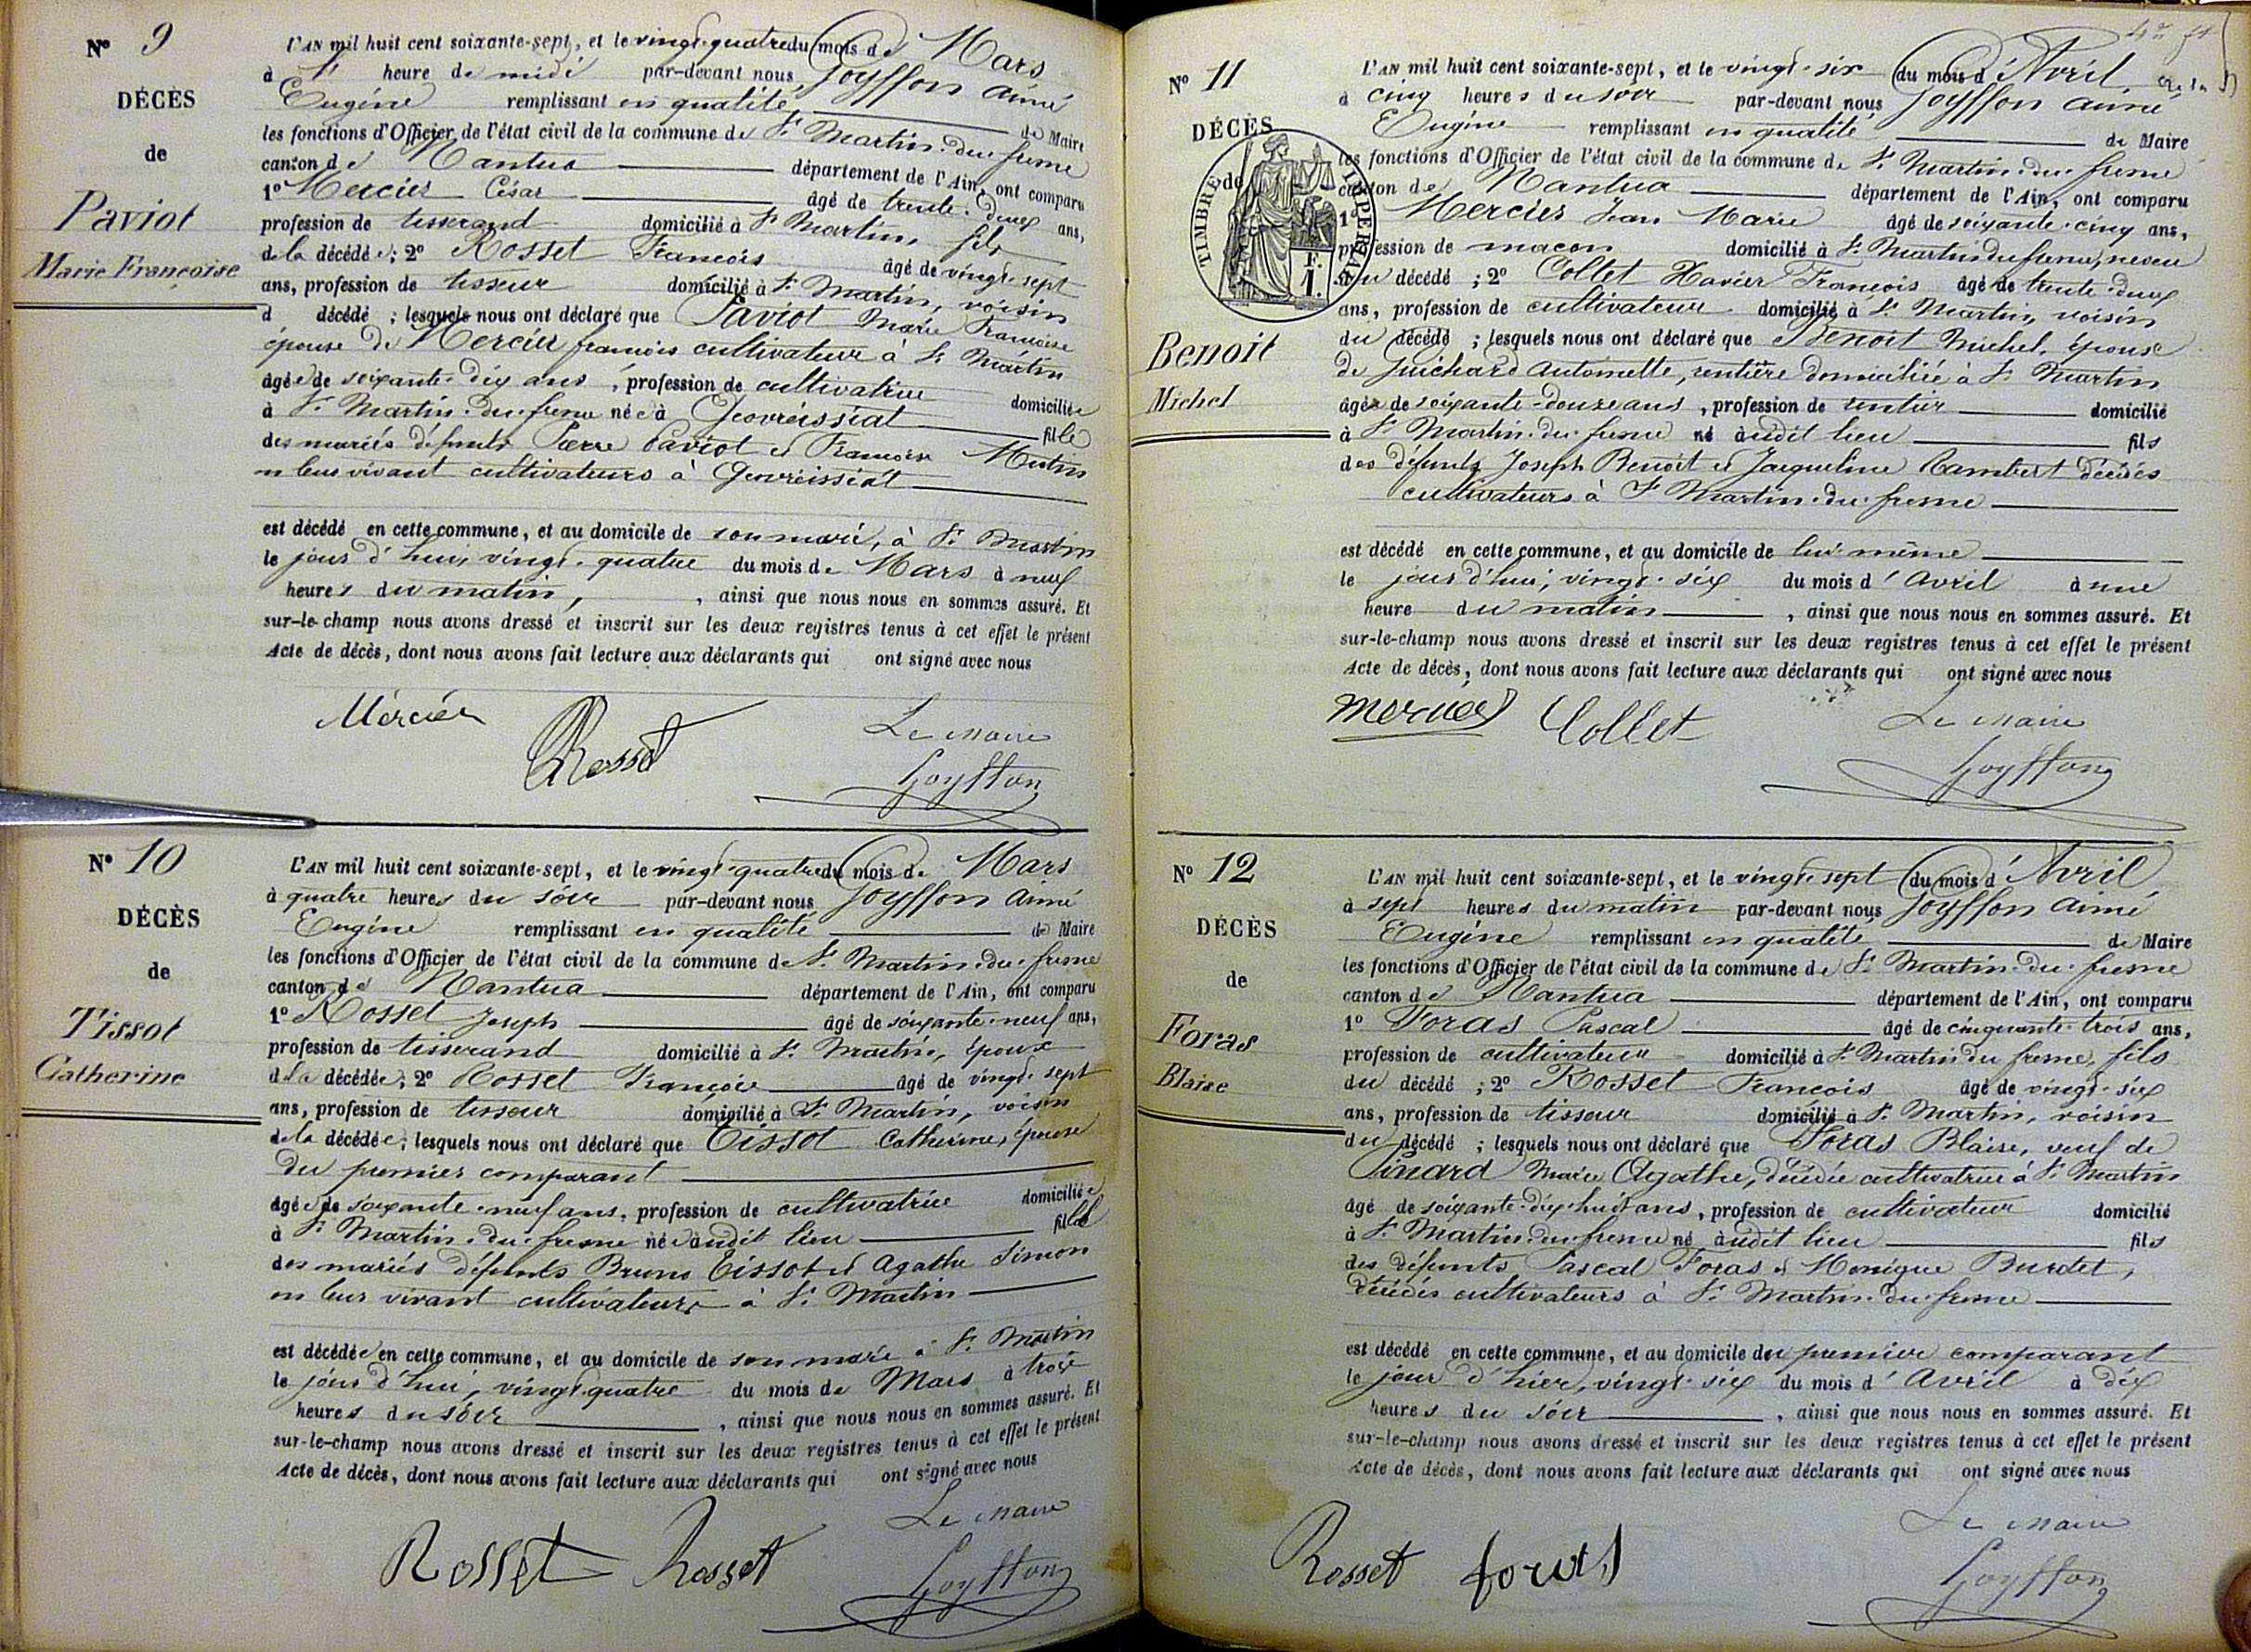 Nº 9
DÉCÈS
de
Paviot
Marie Françoise
L'AN mil huit cent soixante-sept, et le vingt-quatre du mois de Mars
à 1 heure de midi par-devant nous Goyffon Aimé
Eugéne remplissant en qualité de Maire
les fonctions d'Officier de l'état civil de la commune de St Martin-du-fresne
canton de Nantua département de l'Ain, ont comparu
1º Mercier César âgé de trente-deux ans,
profession de tisserand domicilié à St Martin, fils
de la décédée; 2º Rosset François âgé de vingt-sept
ans, profession de tisseur domicilié à St Martin, voisin
d décédé ; lesquels nous ont déclaré que Paviot Marie Françoise
épouse de Mercier françois cultivateur à St Martin
âgée de soixante-dix ans, profession de cultivatrice domiciliée
à St Martin-du-fresne née à Geovreissiat fille
des mariés défunts Pierre Paviot et Françoise Mutin
en leur vivant cultivateurs à Geovreissiat
est décédé en cette commune, et au domicile de son mari, à St Martin
le jour d'hui, vingt-quatre du mois de Mars à neuf
heures du matin, , ainsi que nous nous en sommes assuré. Et
sur-le-champ nous avons dressé et inscrit sur les deux registres tenus à cet effet le présent
Acte de décès, dont nous avons fait lecture aux déclarants qui ont signé avec nous
Mercier Rosset Le Maire
Goyffon
Nº 10
DÉCÈS
de
Tissot
Catherine
L'AN mil huit cent soixante-sept, et le vingt-quatre du mois de Mars
à quatre heures du soir par-devant nous Goyffon Aimé
Eugéne remplissant en qualité de Maire
les fonctions d'Officier de l'état civil de la commune de St Martin-du-fresne
canton de Nantua département de l'Ain, ont comparu
1º Rosset Joseph âgé de soixante-neuf ans,
profession de tisserand domicilié à St Martin, époux
de la décédée; 2º Rosset François âgé de vingt-sept
ans, profession de tisseur domicilié à St Martin, voisin
de la décédée; lesquels nous ont déclaré que Tissot Catherine, épouse
du premier comparant
âgée de soixante-neuf ans, profession de cultivatrice domiciliée
à St Martin-du-fresne née audit lieu fille
des mariés défunts Bruno Tissot et Agathe Simon
en leur vivant cultivateurs à St Martin
est décédée en cette commune, et au domicile de son mari à St Martin
le jour d'hui, vingt-quatre du mois de Mars à trois
heures du soir , ainsi que nous nous en sommes assuré. Et
sur-le-champ nous avons dressé et inscrit sur les deux registres tenus à cet effet le présent
Acte de décès, dont nous avons fait lecture aux déclarants qui ont signé avec nous
Le Maire
Rosset Rosset Goyffon
Nº 11
DÉCÈS
de
TIMBRE IMPERIAL
1 F.
Benoit
Michel
L'AN mil huit cent soixante-sept, et le vingt-six du mois d'Avril
à cinq heures du soir par-devant nous Goyffon Aimé
Eugéne remplissant en qualité de Maire
les fonctions d'Officier de l'état civil de la commune de St Martin-du-fresne
canton de Nantua département de l'Ain, ont comparu
1º Mercier Jean Marie âgé de soixante-cinq ans,
profession de maçon domicilié à St Martin du fresne, neveu
du décédé ; 2º Collet Xavier François âgé de trente-deux
ans, profession de cultivateur domicilié à St Martin, voisin
du décédé ; lesquels nous ont déclaré que Benoit Michel, époux
de Guichard Antoinette, rentière domiciliée à St Martin
âgé de soixante-douze ans, profession de rentier domicilié
à St Martin-du-fresne né audit lieu fils
des défunts Joseph Benoit et Jacqueline Rambert décédés
cultivateurs à St Martin-du-fresne
est décédé en cette commune, et au domicile de lui même
le jour d'hui, vingt-six du mois d'Avril à une
heure du matin , ainsi que nous nous en sommes assuré. Et
sur-le-champ nous avons dressé et inscrit sur les deux registres tenus à cet effet le présent
Acte de décès, dont nous avons fait lecture aux déclarants qui ont signé avec nous
Mercier Collet Le Maire
Goyffon
Nº 12
DÉCÈS
de
Foras
Blaise
L'AN mil huit cent soixante-sept, et le vingt-sept du mois d'Avril
à sept heures du matin par-devant nous Goyffon Aimé
Eugéne remplissant en qualité de Maire
les fonctions d'Officier de l'état civil de la commune de St Martin-du-fresne
canton de Nantua département de l'Ain, ont comparu
1º Foras Pascal âgé de cinquante-trois ans,
profession de cultivateur domicilié à St Martin du fresne, fils
du décédé ; 2º Rosset François âgé de vingt-six
ans, profession de tisseur domicilié à St Martin, voisin
du décédé ; lesquels nous ont déclaré que Foras Blaise, veuf de
Pinard Marie Agathe, décédée cultivatrice à St Martin
âgé de soixante-dix-huit ans, profession de cultivateur domicilié
à St Martin-du-fresne né audit lieu fils
des défunts Pascal Foras et Monique Burdet,
décédés cultivateurs à St Martin-du-fresne
est décédé en cette commune, et au domicile du premier comparant
le jour d'hier, vingt-six du mois d'Avril à dix
heures du soir , ainsi que nous nous en sommes assuré. Et
sur-le-champ nous avons dressé et inscrit sur les deux registres tenus à cet effet le présent
Acte de décès, dont nous avons fait lecture aux déclarants qui ont signé avec nous
Le Maire
Rosset foras Goyffon